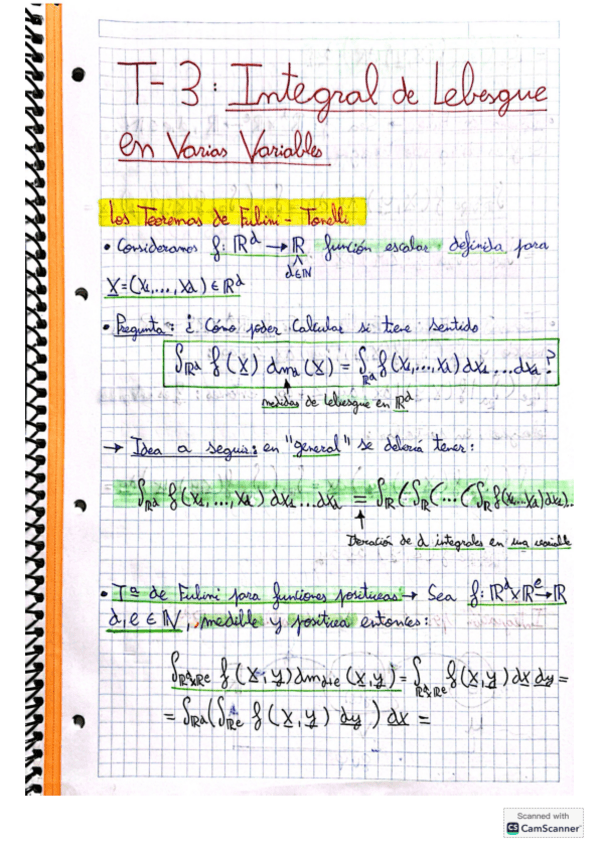 T-3: Integral de Lebesgue
en Varias Variables
Los Teoremas de Fubini-Tonelli
• Consideramos f: ℝᵈ → ℝ función escalar definida para
d∈ℕ
x=(x₁,...,x_d) ∈ ℝᵈ
• Pregunta: ¿Cómo poder calcular si tiene sentido
∫_ℝᵈ f(x) dm_d(x) = ∫_ℝᵈ f(x₁,...,x_d) dx₁...dx_d?
medidas de Lebesgue en ℝᵈ
→ Idea a seguir: en "general" se debería tener:
∫_ℝᵈ f(x₁,...,x_d) dx₁...dx_d = ∫_ℝ(∫_ℝ(...(∫_ℝ f(x₁...x_d)dx₁)..
Iteración de d integrales en una variable
• Tª de Fubini para funciones positivas → Sea f: ℝᵈxℝᵉ→ℝ
d,e ∈ ℕ, medible y positiva entonces:
∫_ℝᵈxℝᵉ f(x;y) dm_d+e (x,y) = ∫_ℝᵈxℝᵉ f(x,y) dx dy =
= ∫_ℝᵈ(∫_ℝᵉ f(x,y) dy) dx =
Scanned with
CS CamScanner